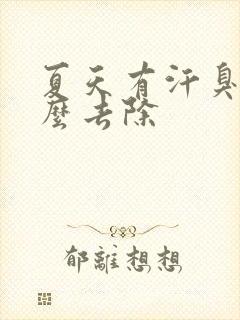 夏天有汗臭
麽去除
郁離想想